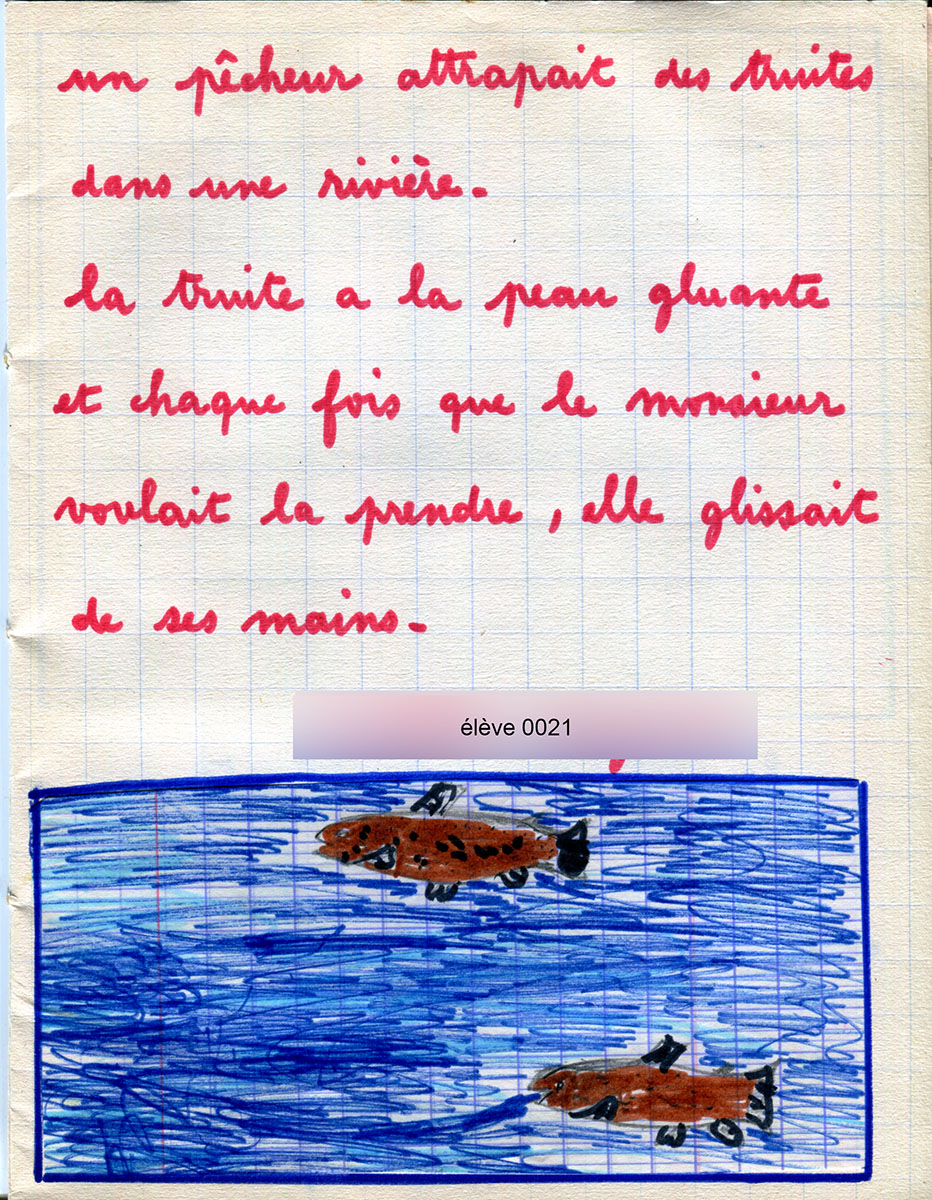 un pêcheur attrapait des truites
dans une rivière.
la truite a la peau gluante
et chaque fois que le monsieur
voulait la prendre, elle glissait
de ses mains.
élève 0021